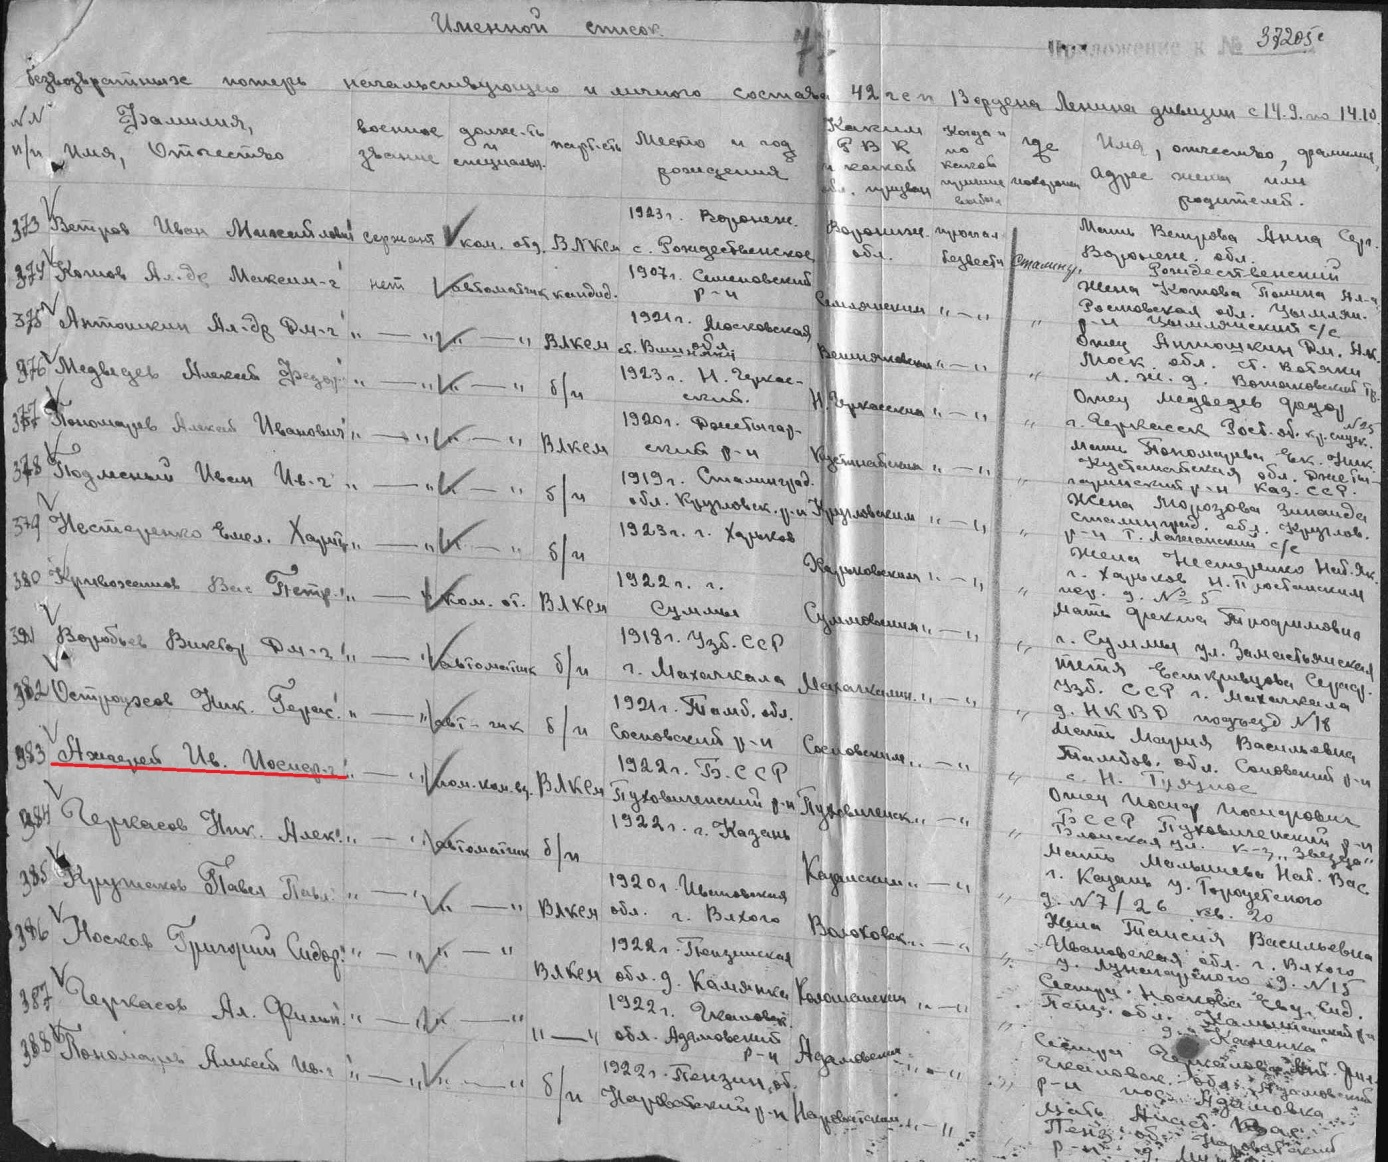 Именной список
77
Приложение к № 37205с
безвозвратных потерь начальствующего и личного состава 42 гсп 13 ордена Ленина дивизии с 14.9. по 14.10.
№№ п/п
Фамилия, Имя, Отчество
военное звание
должн-ть и специальн.
парт-сть
Место и год рождения
Каким РВК и какой обл. призван
Когда и по какой причине выбыл
где похоронен
Имя, отчество, фамилия, адрес жены или родителей.
373 Ветров Иван Михайлович сержант ком. отд. ВЛКСМ 1923г. Воронеж. с. Рождественское Воронеж. обл. пропал безвести Сталингр. Мать Ветрова Анна Серг. Воронеж. обл. Рождественский
374 Котов Ал-др Максим-ч нет автоматчик кандид. 1907г. Семеновский р-н " — " " Жена Котова Полина Ростовская обл. Цымлян. р-н Цымлянский с/с
375 Антошкин Ал-др Дм-ч " — " " — " ВЛКСМ 1921г. Московская обл. " — " " Отец Антошкин Дм. Моск. обл. ст.
376 Медведев Алексей Федор. " — " " — " б/п 1923г. Н. Черкасский. Н. Черкасским " — " " Отец Медведев Федор г. Черкасск Рост. об.
377 Пономарев Алексей Иванович " — " " — " ВЛКСМ 1920г. Джетыгарский р-н " — " " Мать Пономарева Ек. Ник. Кустанайская обл. Джетыгаринский р-н Каз. ССР.
378 Подмений Иван Ив-ч " — " " — " б/п 1919г. Сталинград. обл. Кругловск. р-н Кругловским " — " " Жена Морозова Зинаида Сталинград. обл. Круглов. р-н
379 Нестеренко Емел. Харит. " — " " — " б/п 1923г. г. Харьков Харьковским " — " " Жена Нестеренко Нат. Як. г. Харьков пер. д. № 5
380 Кривошеев Вас Петр. " — " ком. от. ВЛКСМ 1922г. г. Суммы Суммовским " — " " Мать Фекла Трофимовна г. Суммы ул.
381 Воробьев Виктор Дм-ч " — " автоматчик б/п 1918г. Узб. ССР г. Махачкала Махачкалин. " — " " тетя Узб. ССР г. Махачкала д. НКВД подъезд №18
382 Остроухов Ник. Герас. " — " авт-чик б/п 1921г. Тамб. обл. Сосновский р-н Сосновским " — " " Мать Мария Васильевна Тамбов. обл. Сосновский р-н
383 Ажгерей Ив. Иосиф-ч " — " пом. ком. вз. ВЛКСМ 1922г. БССР Пуховиченский р-н Пуховиченск. " — " " Отец Иосиф Иосифович БССР Пуховиченский р-н Блонская ул. к-з „Звезда"
384 Черкасов Ник. Алек. " — " автоматчик б/п 1922г. г. Казань Казанским " — " " Мать Малышева Нат. Вас г. Казань у. д. №7/26 кв. 20
385 Кружаков Павел Павл. " — " " — " ВЛКСМ 1920г. Ивановская обл. г. " — " " Жена Таисия Васильевна Ивановская обл. г. у. Луначарского д. №15
386 Носков Григорий Сидор. " — " " — " ВЛКСМ 1922г. Пензинская обл. д. Камянка " — " " Сестра Носкова Пенз. обл. д. Каменка
387 Черкасов Ал. Филип. " — " " — " " — " 1922г. Чкаловск. обл. Адамовский р-н Адамовским " — " " Сестра Черкасова Чкаловск. обл. Адамовский р-н пос. Адамовка
388 Пономарев Алексей Ив-ч " — " " — " б/п 1922г. Пензин. об. Наровчатский р-н Наровчатским " — " " Мать Пенз. об. Наровчатский р-н д.